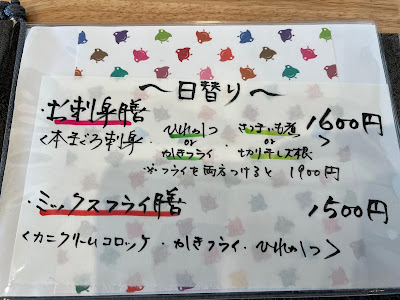 〜日替り〜
・お刺身膳 1600円
<本まぐろ刺身・ひれかつ or かきフライ・さつまいも煮 or 切り干し大根>
※フライを両方つけると 1900円
・ミックスフライ膳 1500円
<カニクリームコロッケ・かきフライ・ひれかつ>